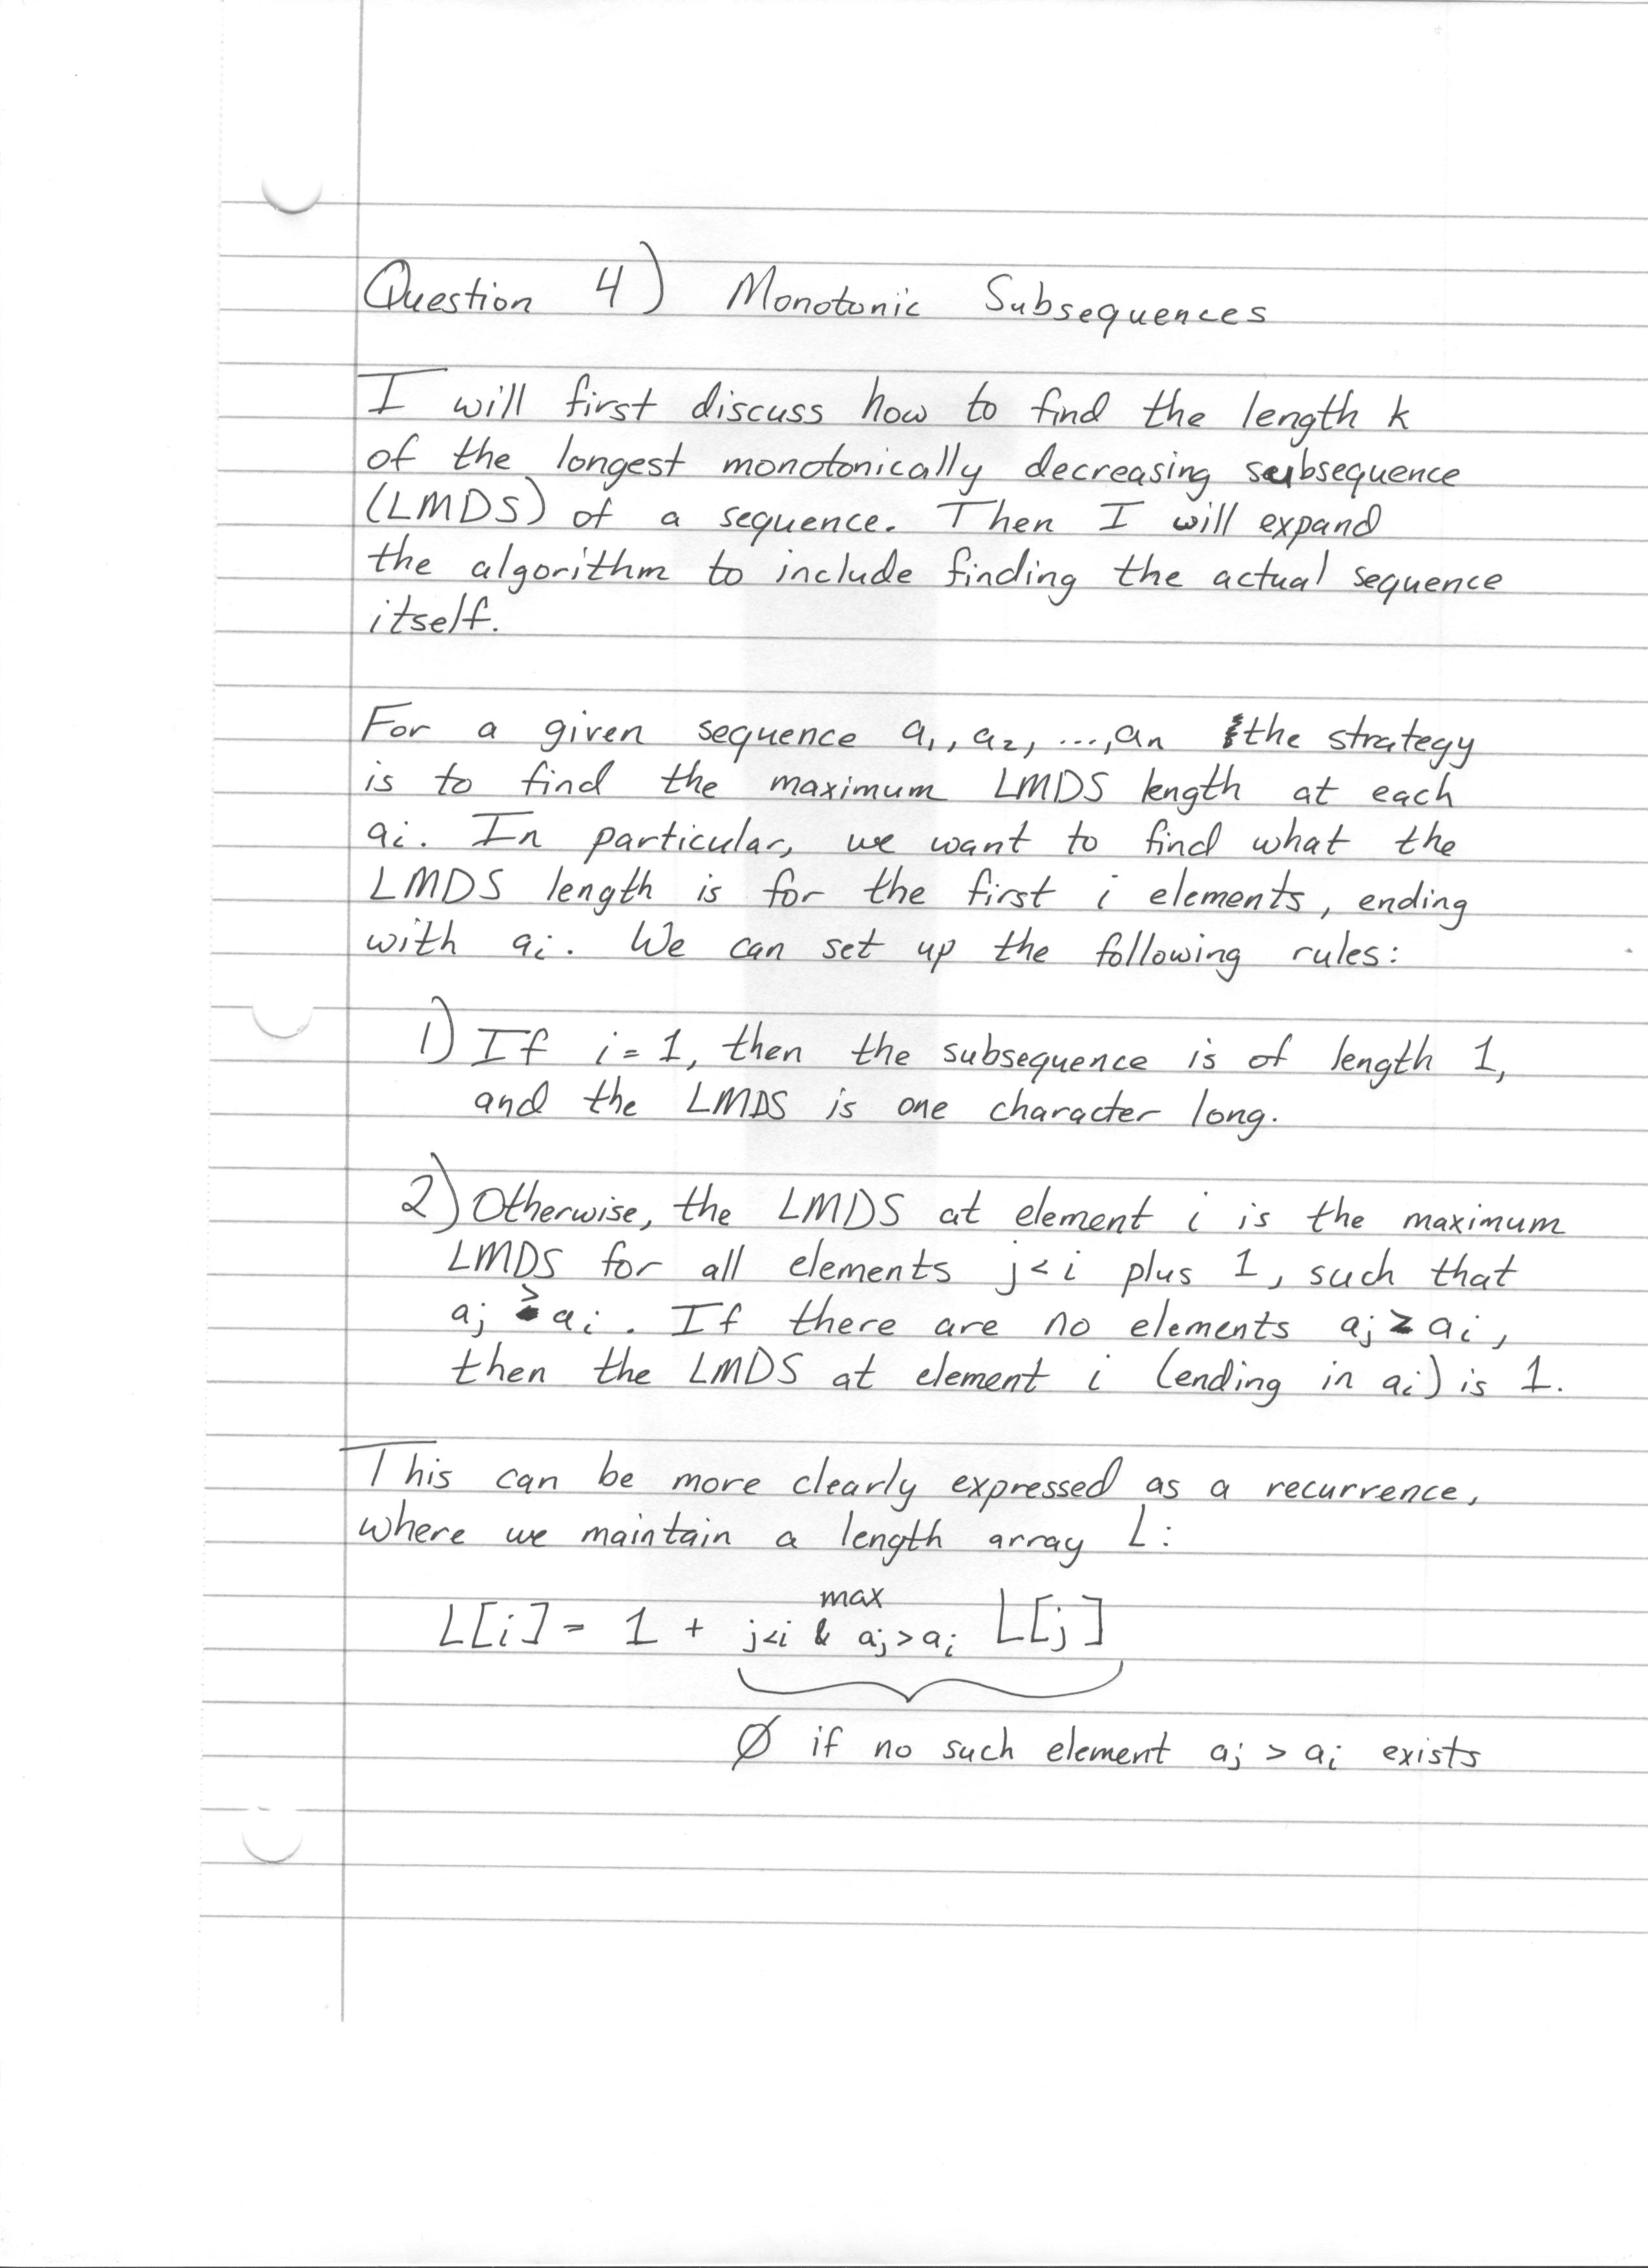 Question 4) Monotonic Subsequences
I will first discuss how to find the length k
of the longest monotonically decreasing subsequence
(LMDS) of a sequence. Then I will expand
the algorithm to include finding the actual sequence
itself.
For a given sequence a₁, a₂, ..., aₙ the strategy
is to find the maximum LMDS length at each
aᵢ. In particular, we want to find what the
LMDS length is for the first i elements, ending
with aᵢ. We can set up the following rules:
1) If i = 1, then the subsequence is of length 1,
and the LMDS is one character long.
2) Otherwise, the LMDS at element i is the maximum
LMDS for all elements j < i plus 1, such that
aⱼ > aᵢ. If there are no elements aⱼ > aᵢ,
then the LMDS at element i (ending in aᵢ) is 1.
This can be more clearly expressed as a recurrence,
where we maintain a length array L:
L[i] = 1 + max j<i & aⱼ > aᵢ L[j]
Ø if no such element aⱼ > aᵢ exists